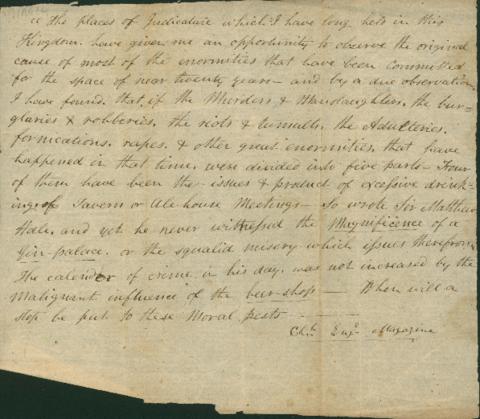 "the places of Judicature which I have long held in this
Kingdom. have given me an opportunity to observe the original
cause of most of the enormities that have been committed
for the space of near twenty years – and by a due observation,
I have found. that, if the Murders & Manslaughters. the bur-
glaries & robberies. the riots & tumults. the Adulteries.
fornications. rapes. & other great enormities, that have
happened in that time, were divided into five parts – Four
of them have been the issues & product of excessive drink-
ing, of Tavern or Ale-house Meetings – So wrote Sir Matthew
Hale. and yet he never witnessed the Magnificence of a
Gin-palace. or the squalid misery which issues therefrom.
The calender of crime in his day. was not increased by the
Malignant influence of the beer-shop – When will a
stop be put to these Moral pests
Ch. Magazine